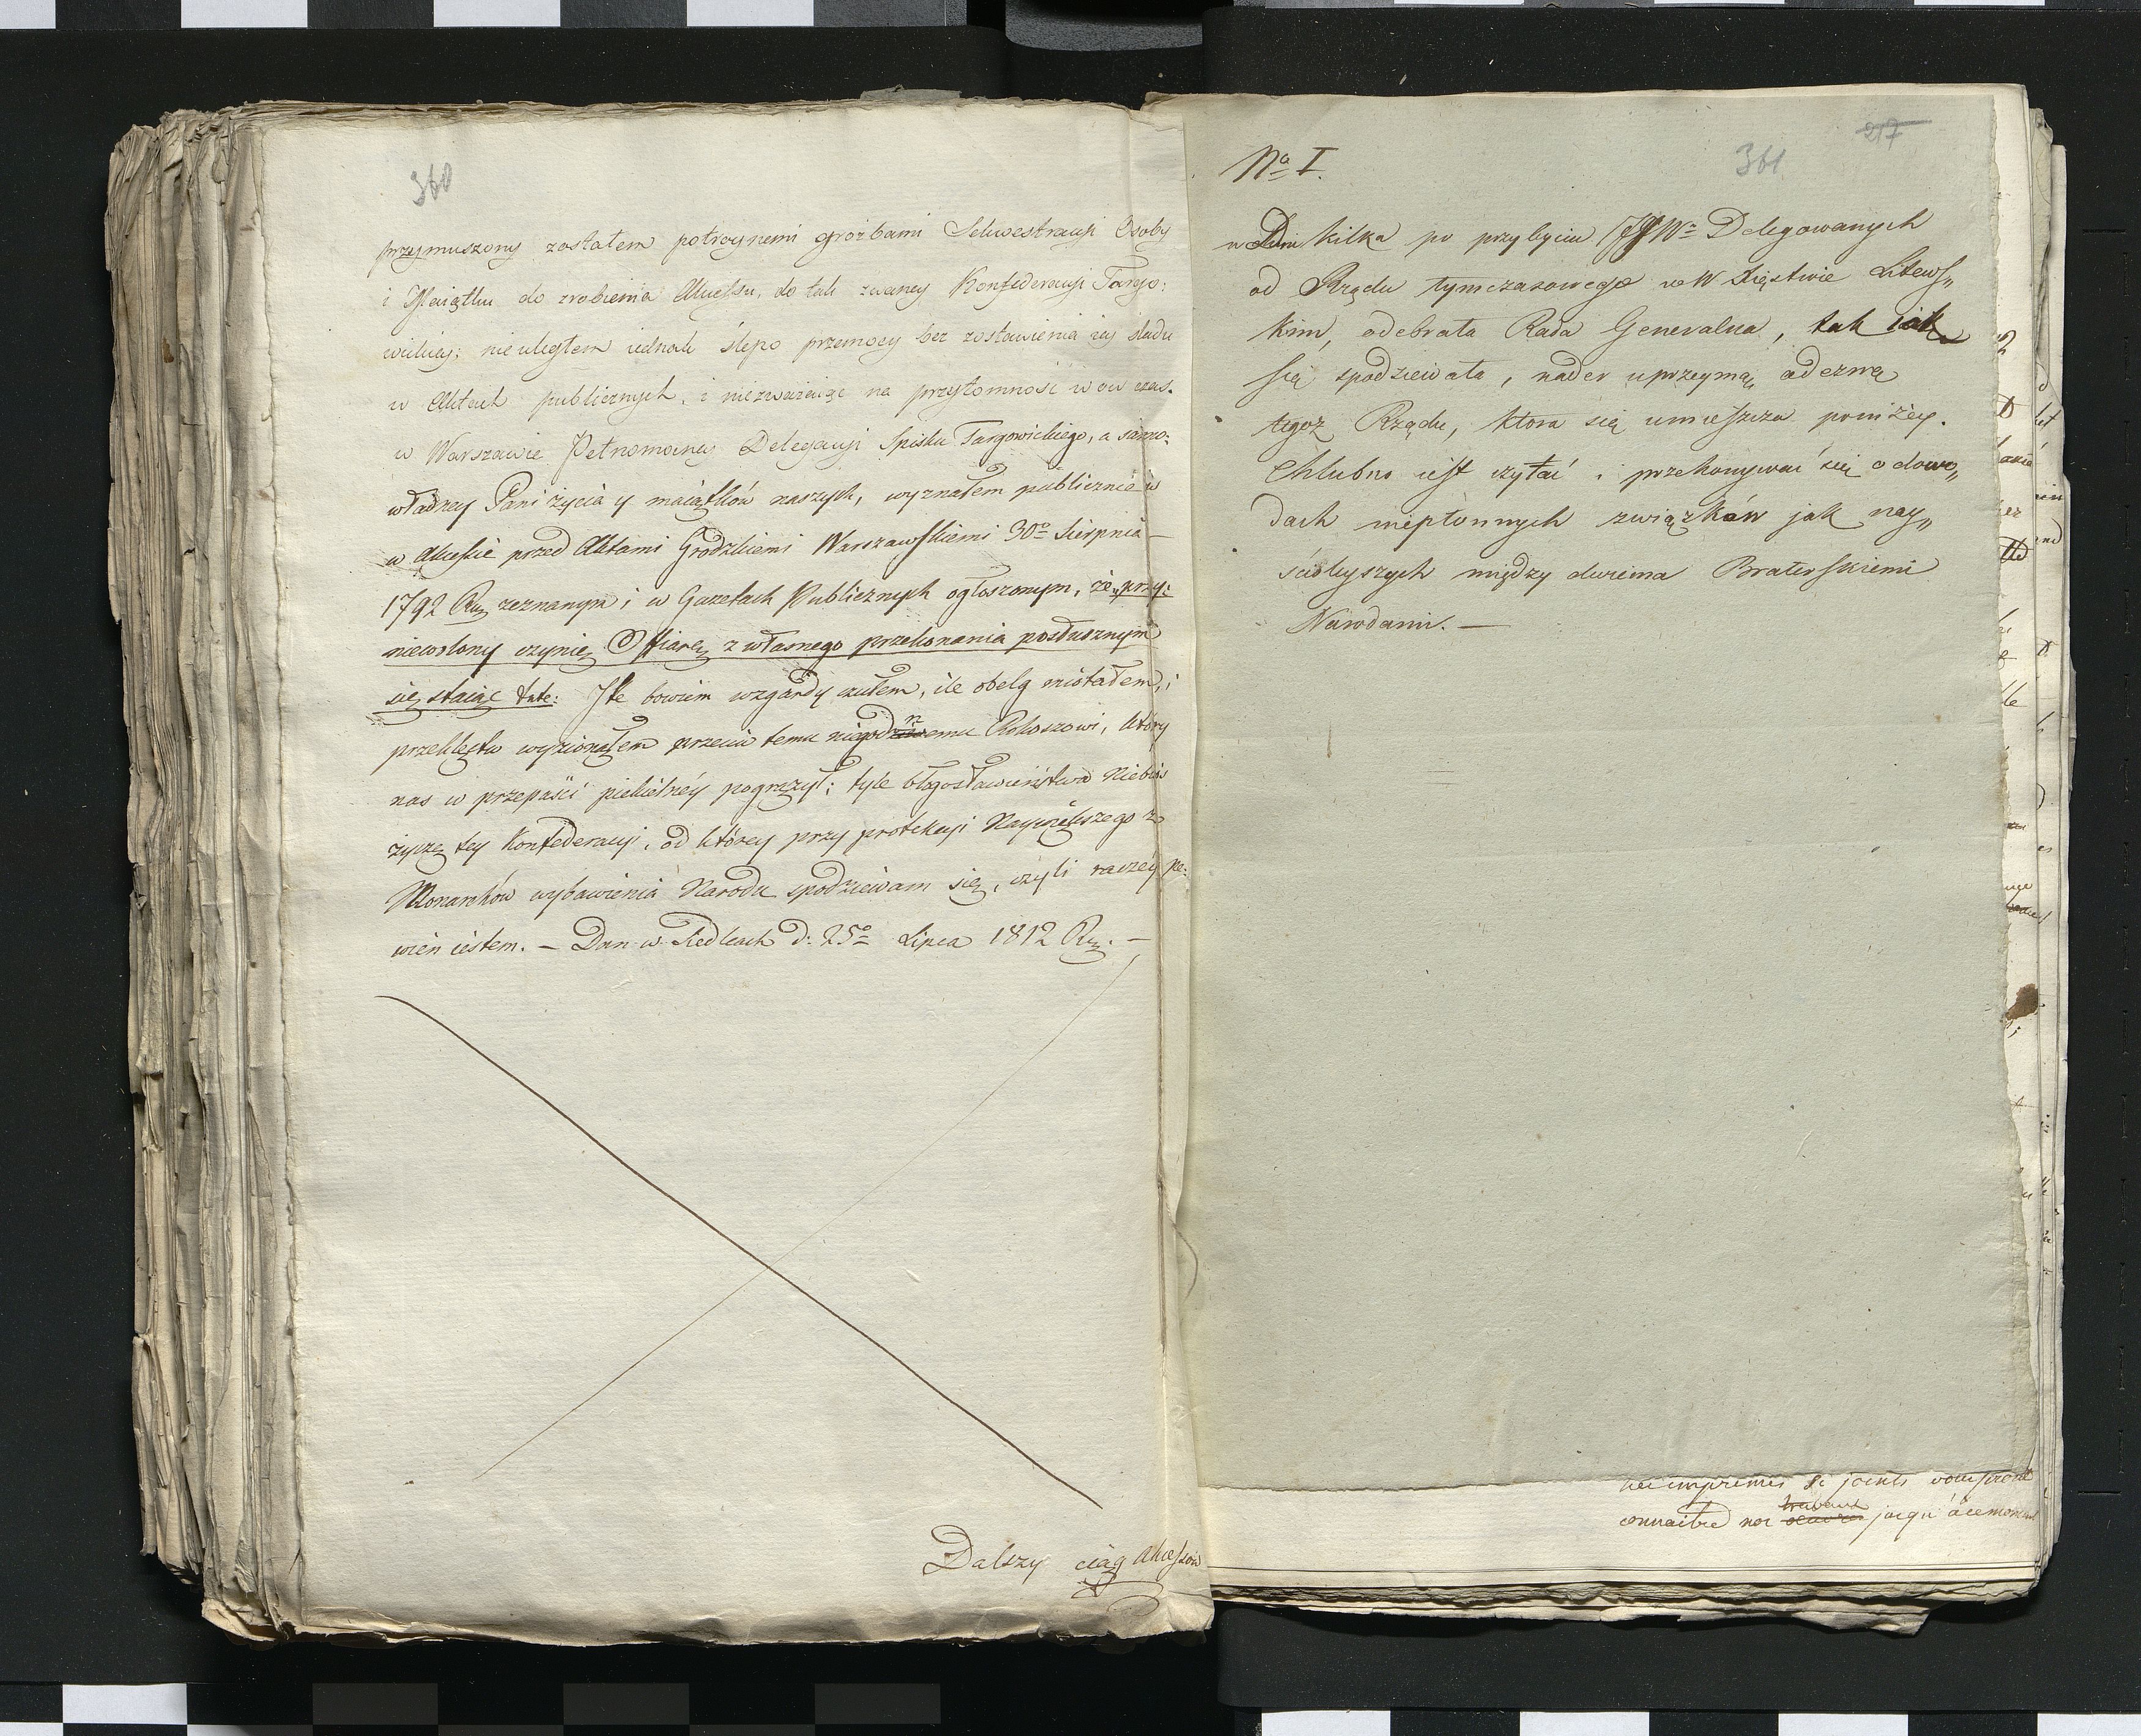 360
przymuszony zostałem potroynemi groźbami Sekwestracyi Osoby
i Maiątku do zrobienia Akcessu, do tak zwaney Konfederacyi Targo:
wickiey; nie uległem iednak ślepo przemocy bez zostawienia iey śladu
w Aktach publicznych, i niezważaiąc na przytomność w ow czas
w Warszawie Pełnomocney Delegacyi Spisku Targowickiego, a samo:
władzey Pani życia y maiątków naszych, wyznałem publicznie w
w Akcesie przed Aktami Grodzkiemi Warszawskiemi 30o Sierpnia —
1792 Ru zeznanym i w Gazetach Publicznych ogłoszonym, że „przy:
niewolony czynię Offiarę z własnego przekonania posłusznym
się staiąc &c&c: Ile bowiem wzgardy czułem, ile obelg miotałem, i
przeklęstw wyzionąłem przeciw temu niegodnemu Rokoszowi, który
nas w przepaści piekielnéy pogrążył; tyle błogosławieństwa Niebios
życzę tey Konfederacyi, od którey przy protekcyi Naywiększego z
Monarchów wybawienia Narodu spodziewam się, czyli raczéy pe:
wien iestem. — Dan w Siedlcach d: 25o Lipca 1812 Ru. —
Dalszy ciąg Akcessów
217
361
No I.
w Dni kilka po przybyciu JJWW Delegowanych
od Rządu tymczasowego w W Xięstwie Litews„
kim, odebrała Rada Generalna, tak iak
się spodziewała, nader uprzeymą odezwę
tegoż Rządu, ktora się umieszcza poniżey.
Chlubno iest czytać i przekonywać się o dowo„
dach niepłonnych związków jak nay„
ściśleyszych między dwiema Braterskiemi
Narodami. —
imprimés ci joints vous feront
connaitre nos travaux jusqu'à ce moment